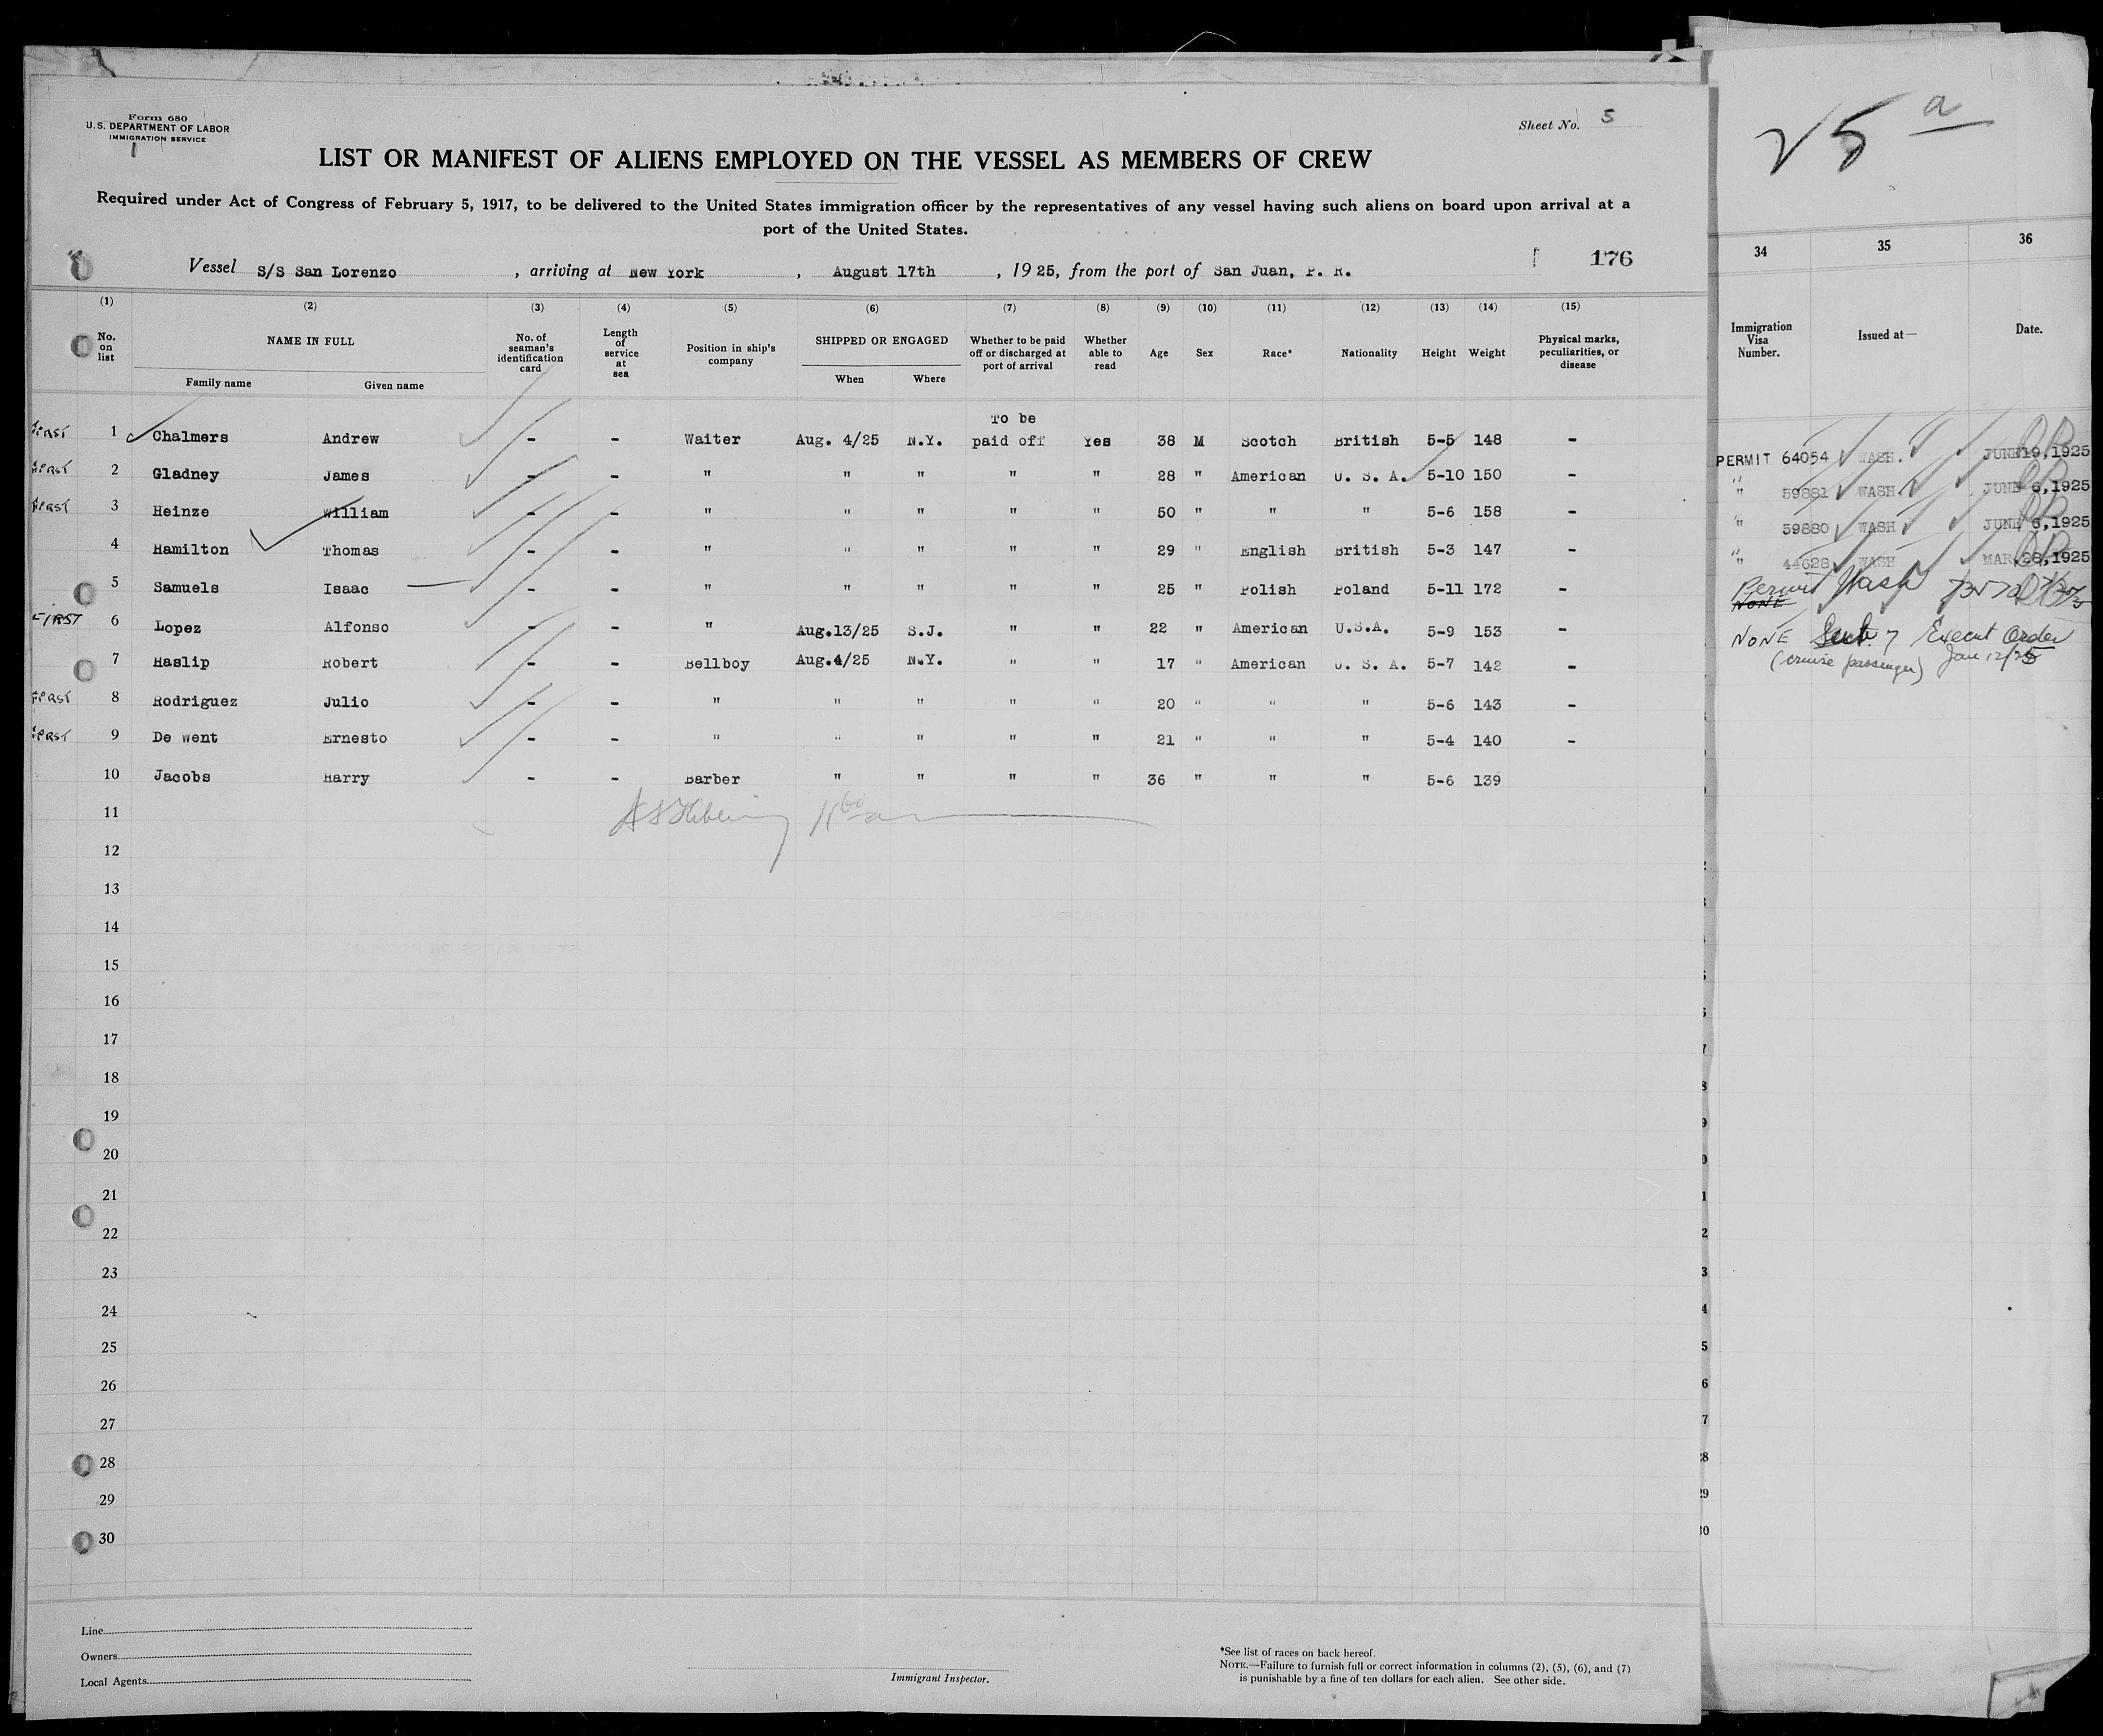 Form 680
U. S. DEPARTMENT OF LABOR
IMMIGRATION SERVICE
Sheet No. 5
LIST OR MANIFEST OF ALIENS EMPLOYED ON THE VESSEL AS MEMBERS OF CREW
Required under Act of Congress of February 5, 1917, to be delivered to the United States immigration officer by the representatives of any vessel having such aliens on board upon arrival at a
port of the United States.
Vessel S/S San Lorenzo, arriving at New York, August 17th, 1925, from the port of San Juan, P. R. 176
(1) (2) (3) (4) (5) (6) (7) (8) (9) (10) (11) (12) (13) (14) (15)
No. on list NAME IN FULL No. of seaman's identification card Length of service at sea Position in ship's company SHIPPED OR ENGAGED Whether to be paid off or discharged at port of arrival Whether able to read Age Sex Race* Nationality Height Weight Physical marks, peculiarities, or disease
Family name Given name When Where
To be
FIRST 1 Chalmers Andrew - - Waiter Aug. 4/25 N.Y. paid off Yes 38 M Scotch British 5-5 148 -
FIRST 2 Gladney James - - " " " " " 28 " American U. S. A. 5-10 150 -
FIRST 3 Heinze William - - " " " " " 50 " " " 5-6 158 -
4 Hamilton Thomas - - " " " " " 29 " English British 5-3 147 -
5 Samuels Isaac - - " " " " " 25 " Polish Poland 5-11 172 -
FIRST 6 Lopez Alfonso - - " Aug.13/25 S.J. " " 22 " American U.S.A. 5-9 153 -
7 Haslip Robert - - Bellboy Aug.4/25 N.Y. " " 17 " American U. S. A. 5-7 142 -
FIRST 8 Rodriguez Julio - - " " " " " 20 " " " 5-6 143 -
FIRST 9 De Went Ernesto - - " " " " " 21 " " " 5-4 140 -
10 Jacobs Harry - - Barber " " " " 36 " " " 5-6 139
11
12
13
14
15
16
17
18
19
20
21
22
23
24
25
26
27
28
29
30
Line
Owners
Local Agents
Immigrant Inspector.
*See list of races on back hereof.
NOTE.—Failure to furnish full or correct information in columns (2), (5), (6), and (7)
is punishable by a fine of ten dollars for each alien. See other side.
25 a
34 35 36
Immigration Visa Number. Issued at— Date.
PERMIT 64054 WASH. JUNE 19, 1925
" 59881 WASH JUNE 6, 1925
" 59880 WASH JUNE 6, 1925
" 44628 WASH MAR 28, 1925
Permit Wash
NONE
NONE Sect. 7 Execut Order
(cruise passenger) Jan 12/25